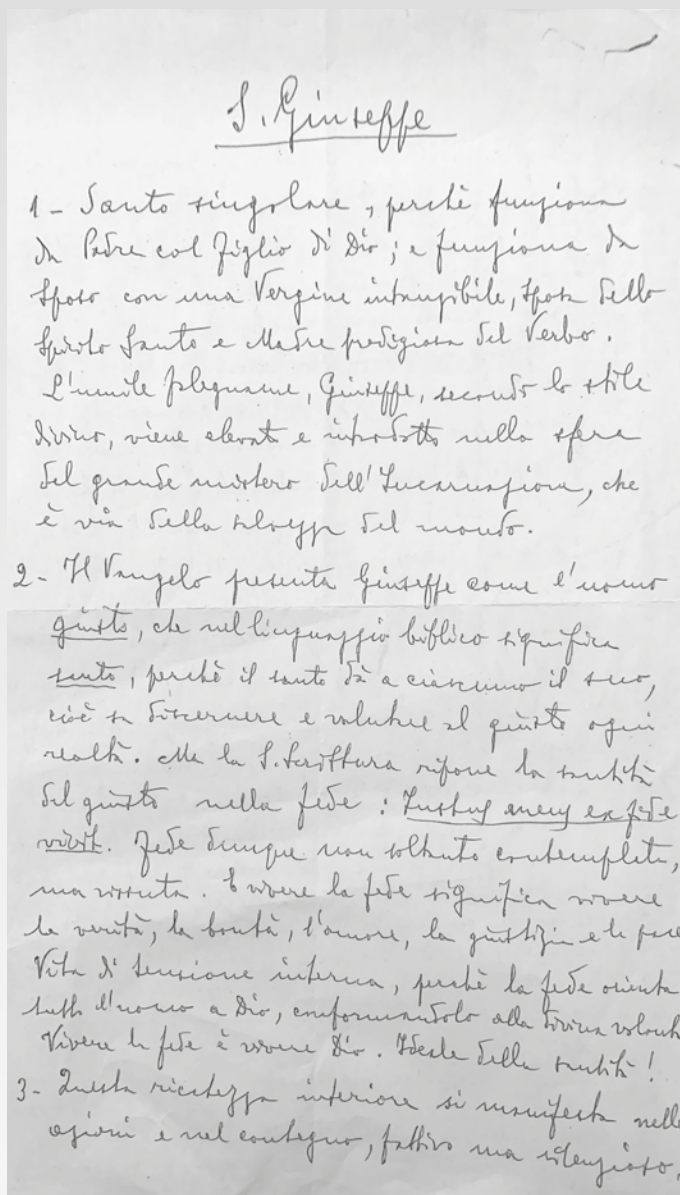 S. Giuseppe
1 - Santo singolare, perchè funziona
da Padre col Figlio di Dio; e funziona da
Sposo con una Vergine intangibile, Sposa dello
Spirito Santo e Madre prodigiosa del Verbo.
L'umile falegname, Giuseppe, secondo lo stile
divino, viene elevato e introdotto nella sfera
del grande mistero dell'Incarnazione, che
è via della salvezza del mondo.
2 - Il Vangelo presenta Giuseppe come l'uomo
giusto, che nel linguaggio biblico significa
santo, perchè il santo dà a ciascuno il suo,
cioè sa discernere e valutare al giusto ogni
realtà. Ma la S. Scrittura ripone la santità
del giusto nella fede: Justus meus ex fide
vivit. Fede dunque non soltanto contemplata,
ma vissuta. E vivere la fede significa vivere
la verità, la bontà, l'amore, la giustizia e la pace
Vita di tensione interna, perchè la fede orienta
tutto l'uomo a Dio, conformandolo alla divina volontà
Vivere la fede è vivere Dio. Ideale della santità!
3 - Questa ricchezza interiore si manifesta nelle
azioni e nel contegno, fattivo ma silenzioso,